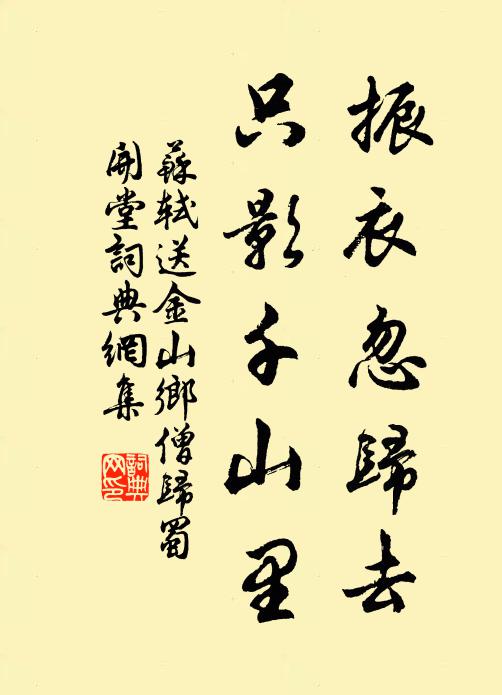 振衣忽歸去
只影千山里
蘇軾送金山鄉僧歸蜀
開堂詞典網集
詞典
网印